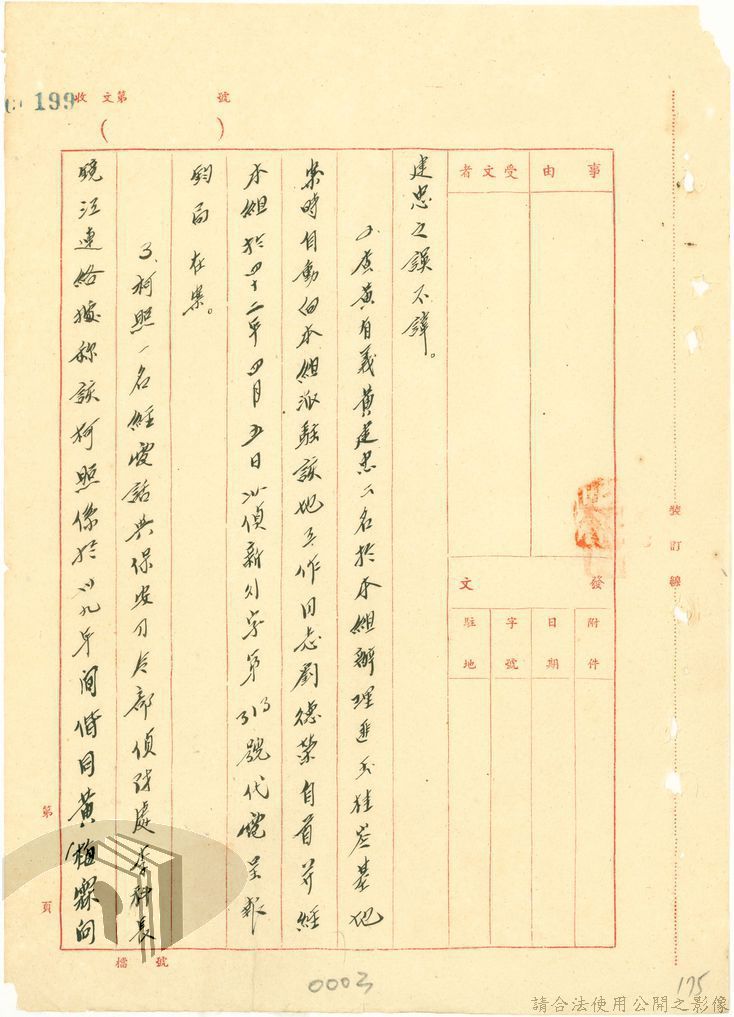 199
收文第 號
( )
事由
受文者
發文
附件
日期
字號
駐地
建忠之誤不諱。
2、查黃自義黃建忠二名於本組辦理匪 桂 基犯
案時自動向本組派駐該地工作同志劉德榮自首並經
本組於四十二年四月五日以偵新 字第313號代電呈報
鈞局在案。
3、柯照一名經電話與保安司令部偵防處李科長
曉江連絡據称該柯照係於卅九年間偕同黃 霖向
裝訂線
第 頁
檔 號
0003
175
請合法使用公開之影像